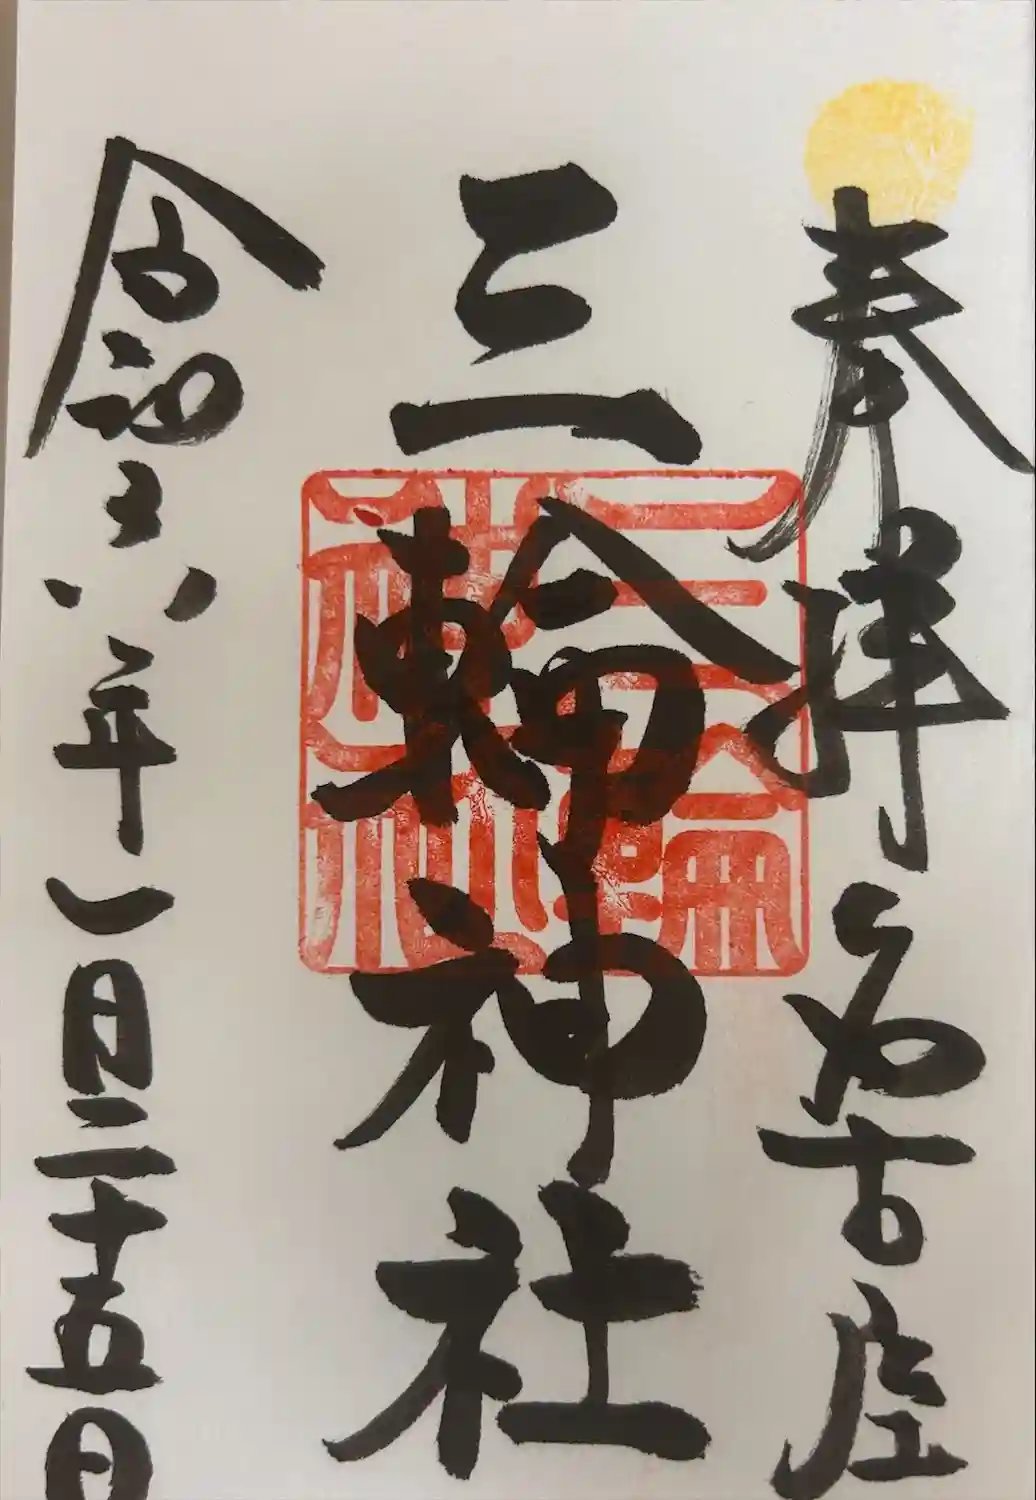 奉拝 名古屋
三輪神社
三輪神社
令和六年一月二十五日